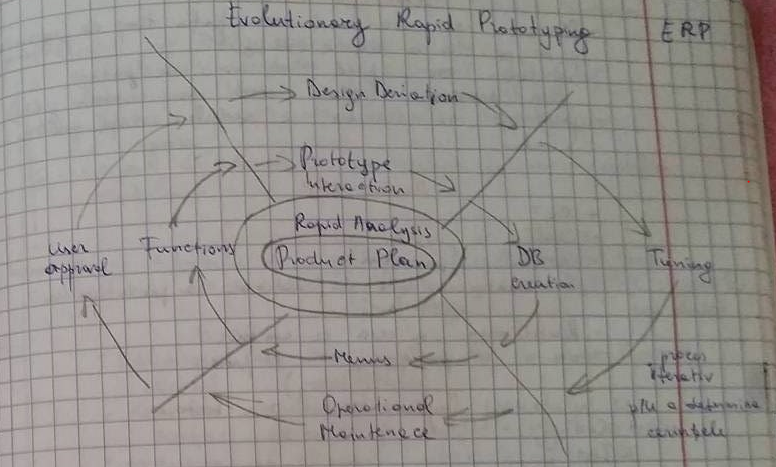 Evolutionary Rapid Prototyping ERP
Design Deriation
Prototype
Interaction
Rapid Analysis
Product Plan
User
approval
Functions
DB
creation
Tuning
Menus
Operational
Maintenace
proces
iterativ
a determina
cerințele